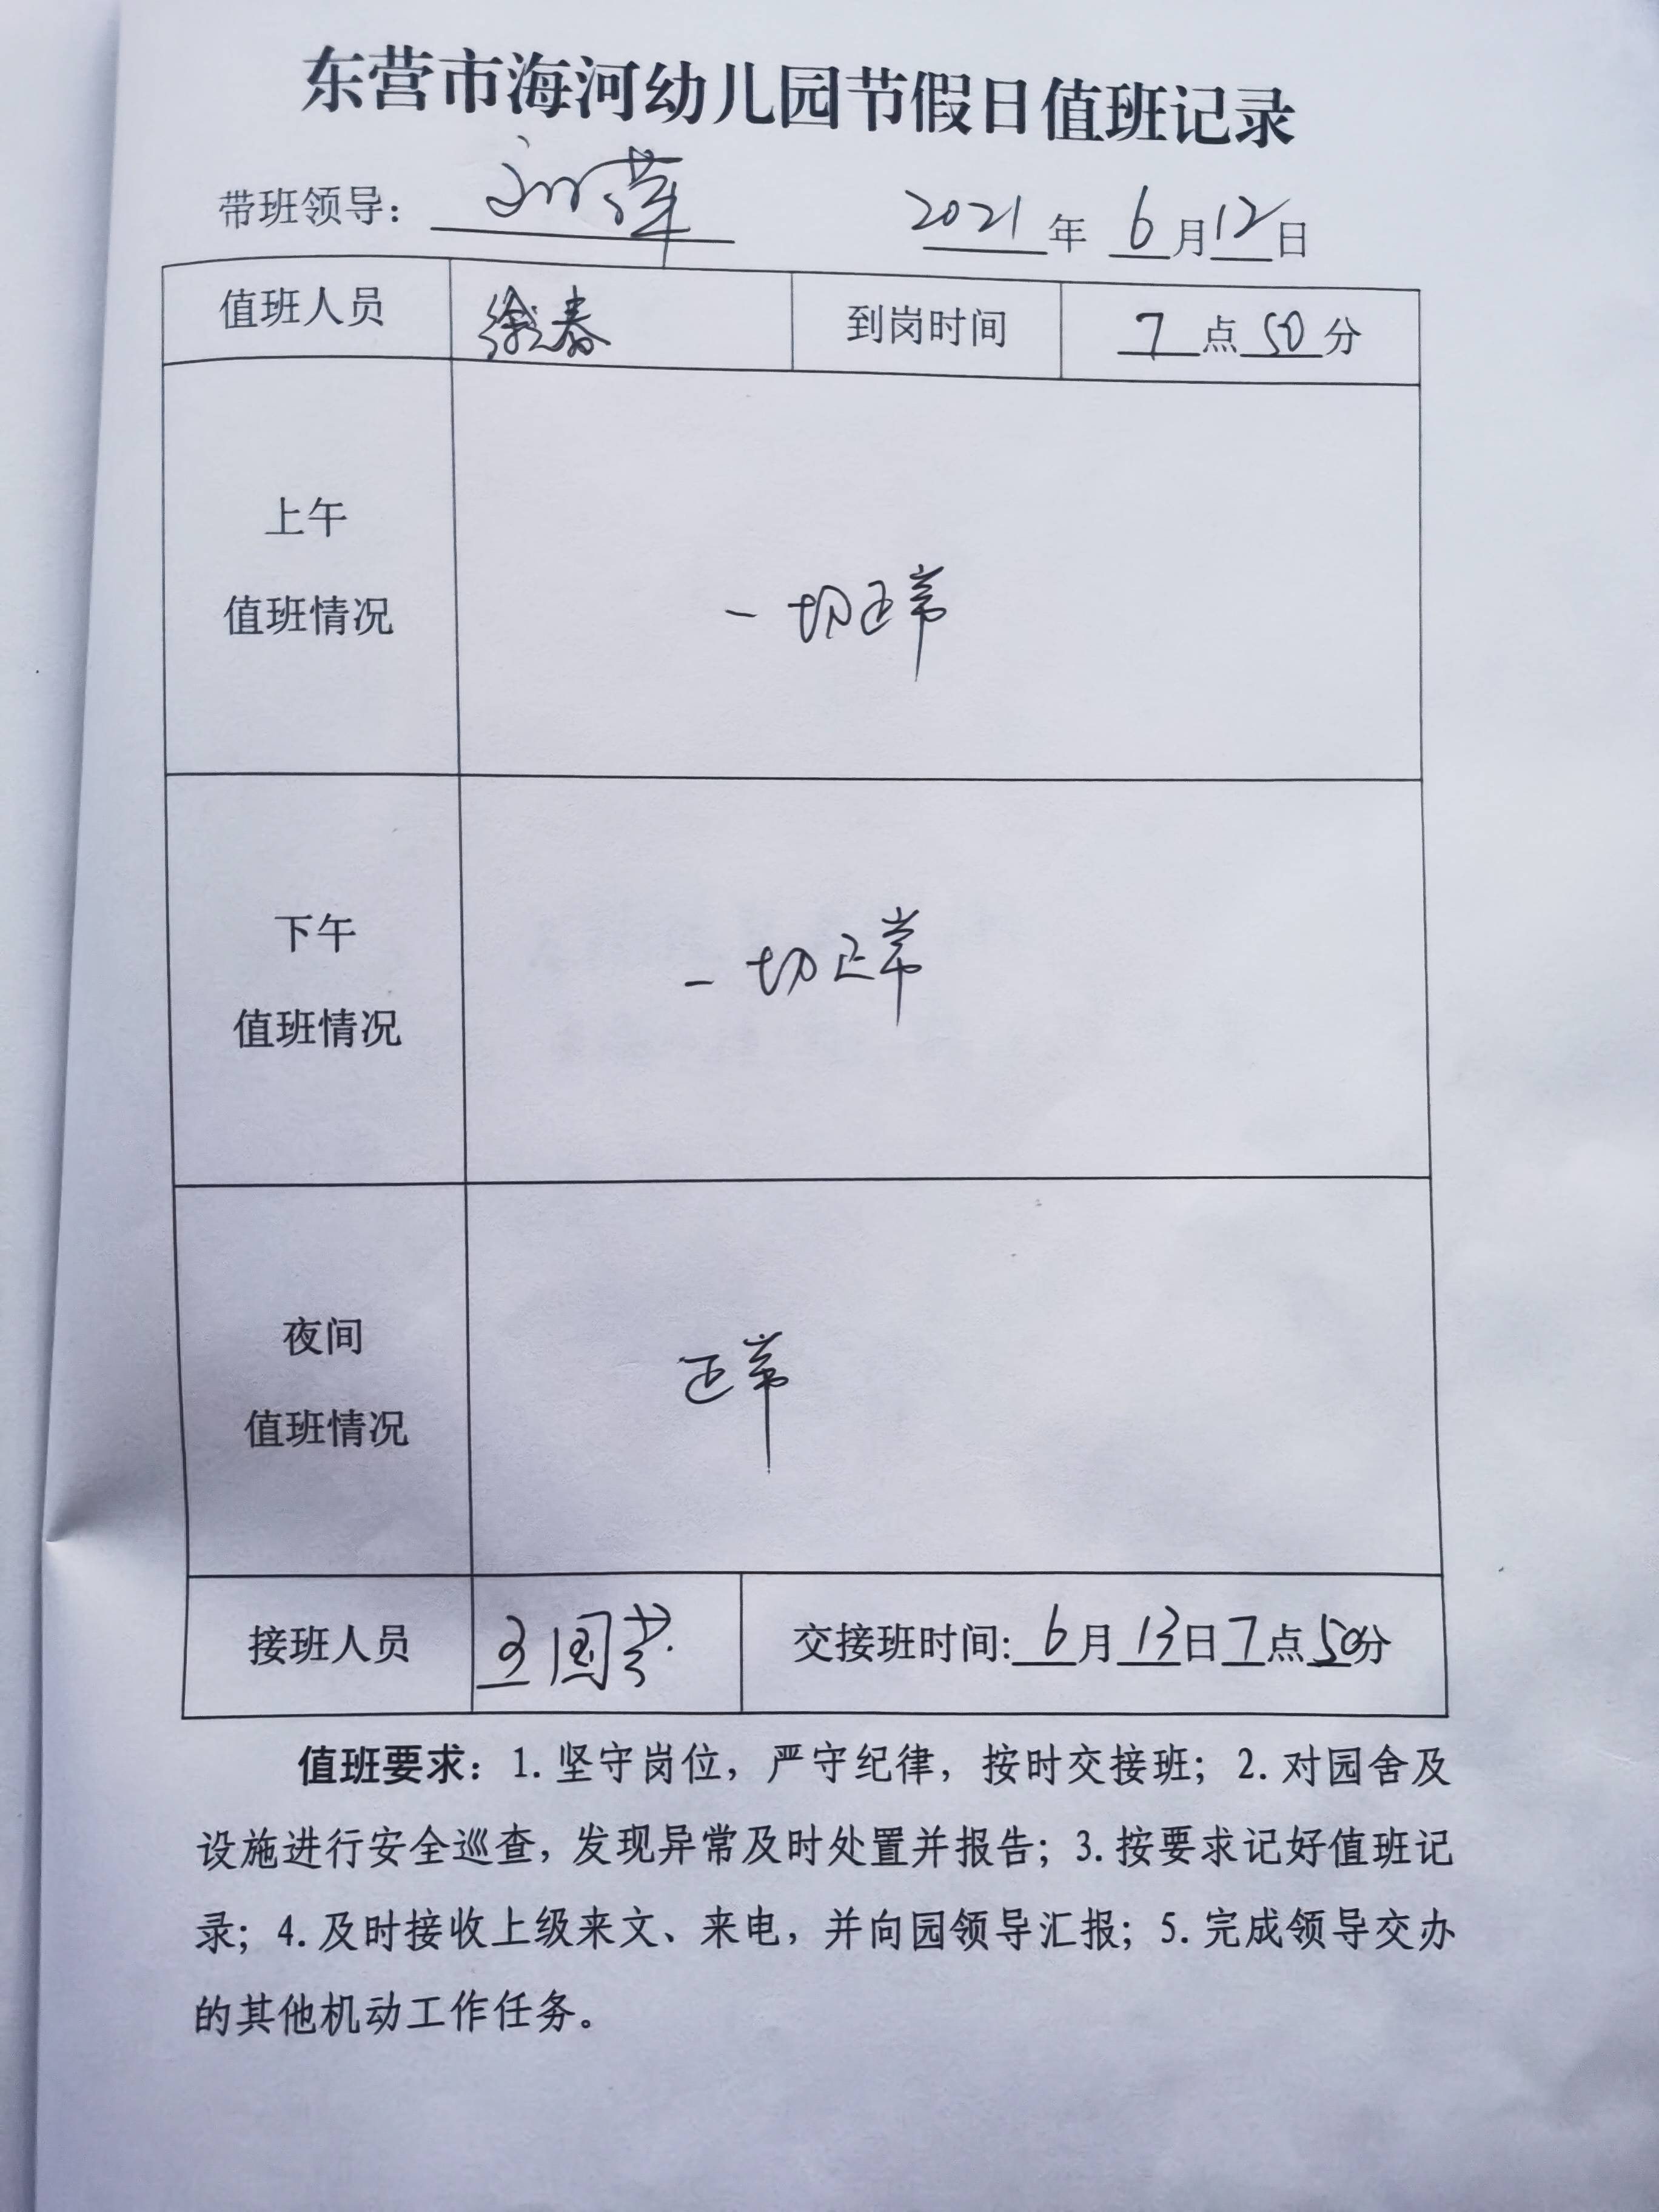 东营市海河幼儿园节假日值班记录
带班领导： 2021年 6月12日
值班人员 徐春 到岗时间 7点50分
上午
值班情况
一切正常
下午
值班情况
一切正常
夜间
值班情况
正常
接班人员 王国芳 交接班时间:6月13日7点50分
值班要求：1.坚守岗位，严守纪律，按时交接班；2.对园舍及
设施进行安全巡查，发现异常及时处置并报告；3.按要求记好值班记
录；4.及时接收上级来文、来电，并向园领导汇报；5.完成领导交办
的其他机动工作任务。